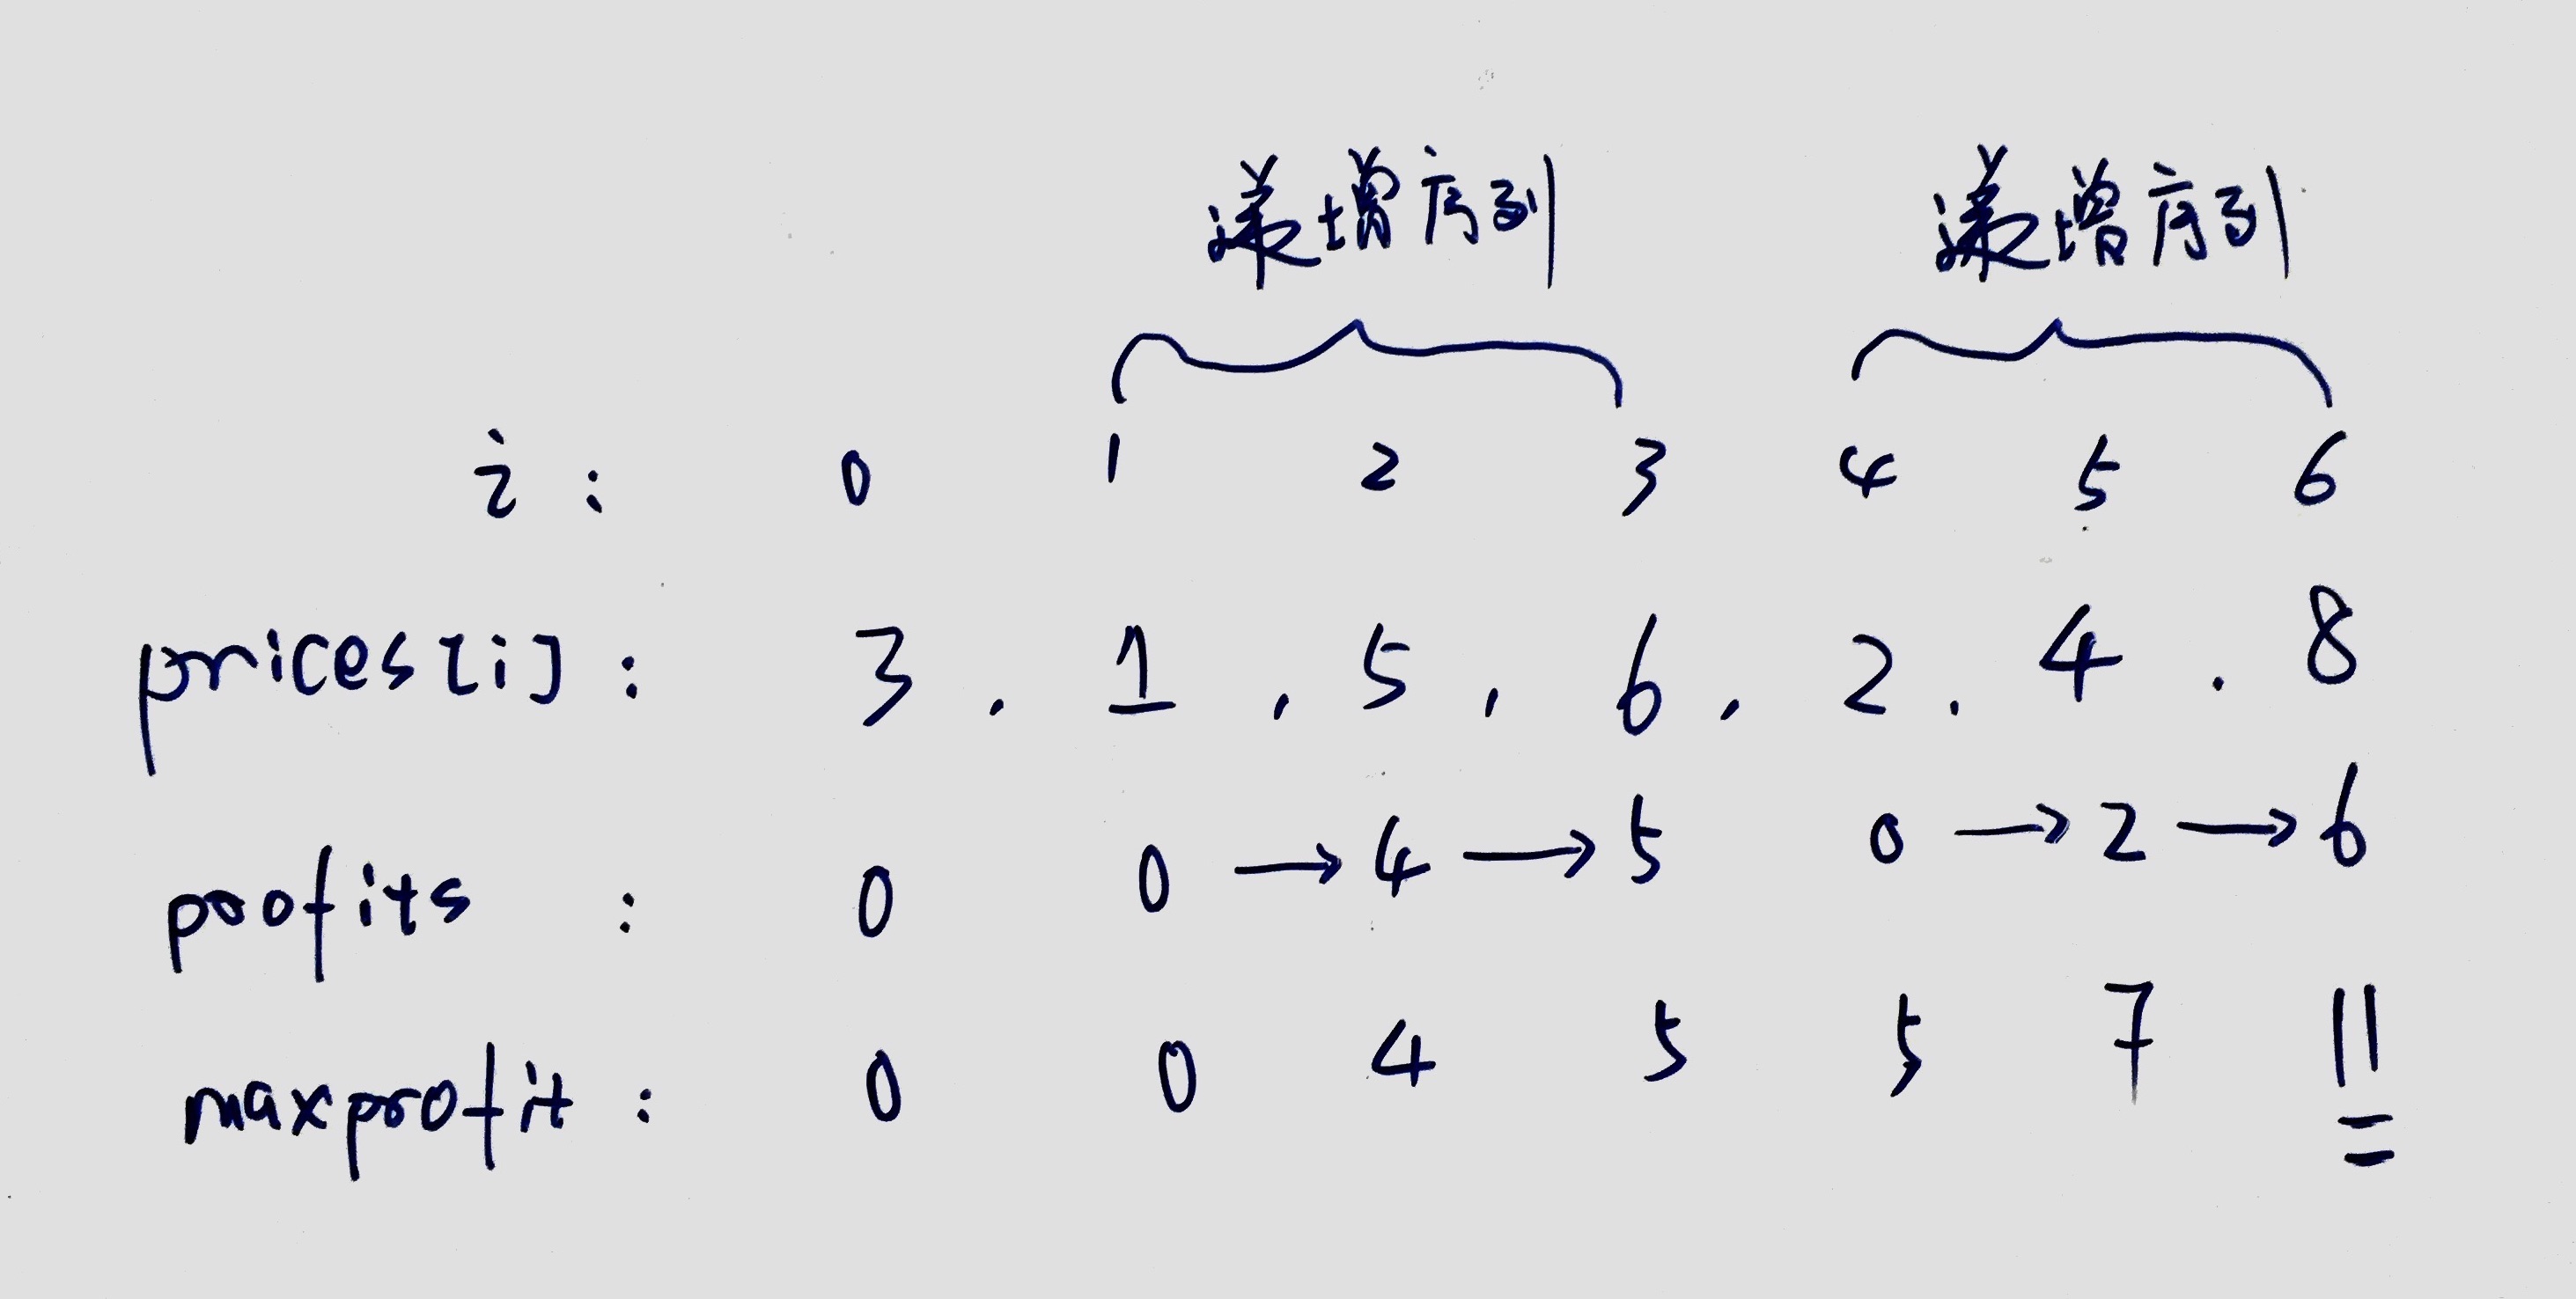 递增序列 递增序列
i : 0 1 2 3 4 5 6
prices[i] : 3 , 1 , 5 , 6 , 2 , 4 , 8
profits : 0 0 → 4 → 5 0 → 2 → 6
maxprofit : 0 0 4 5 5 7 11